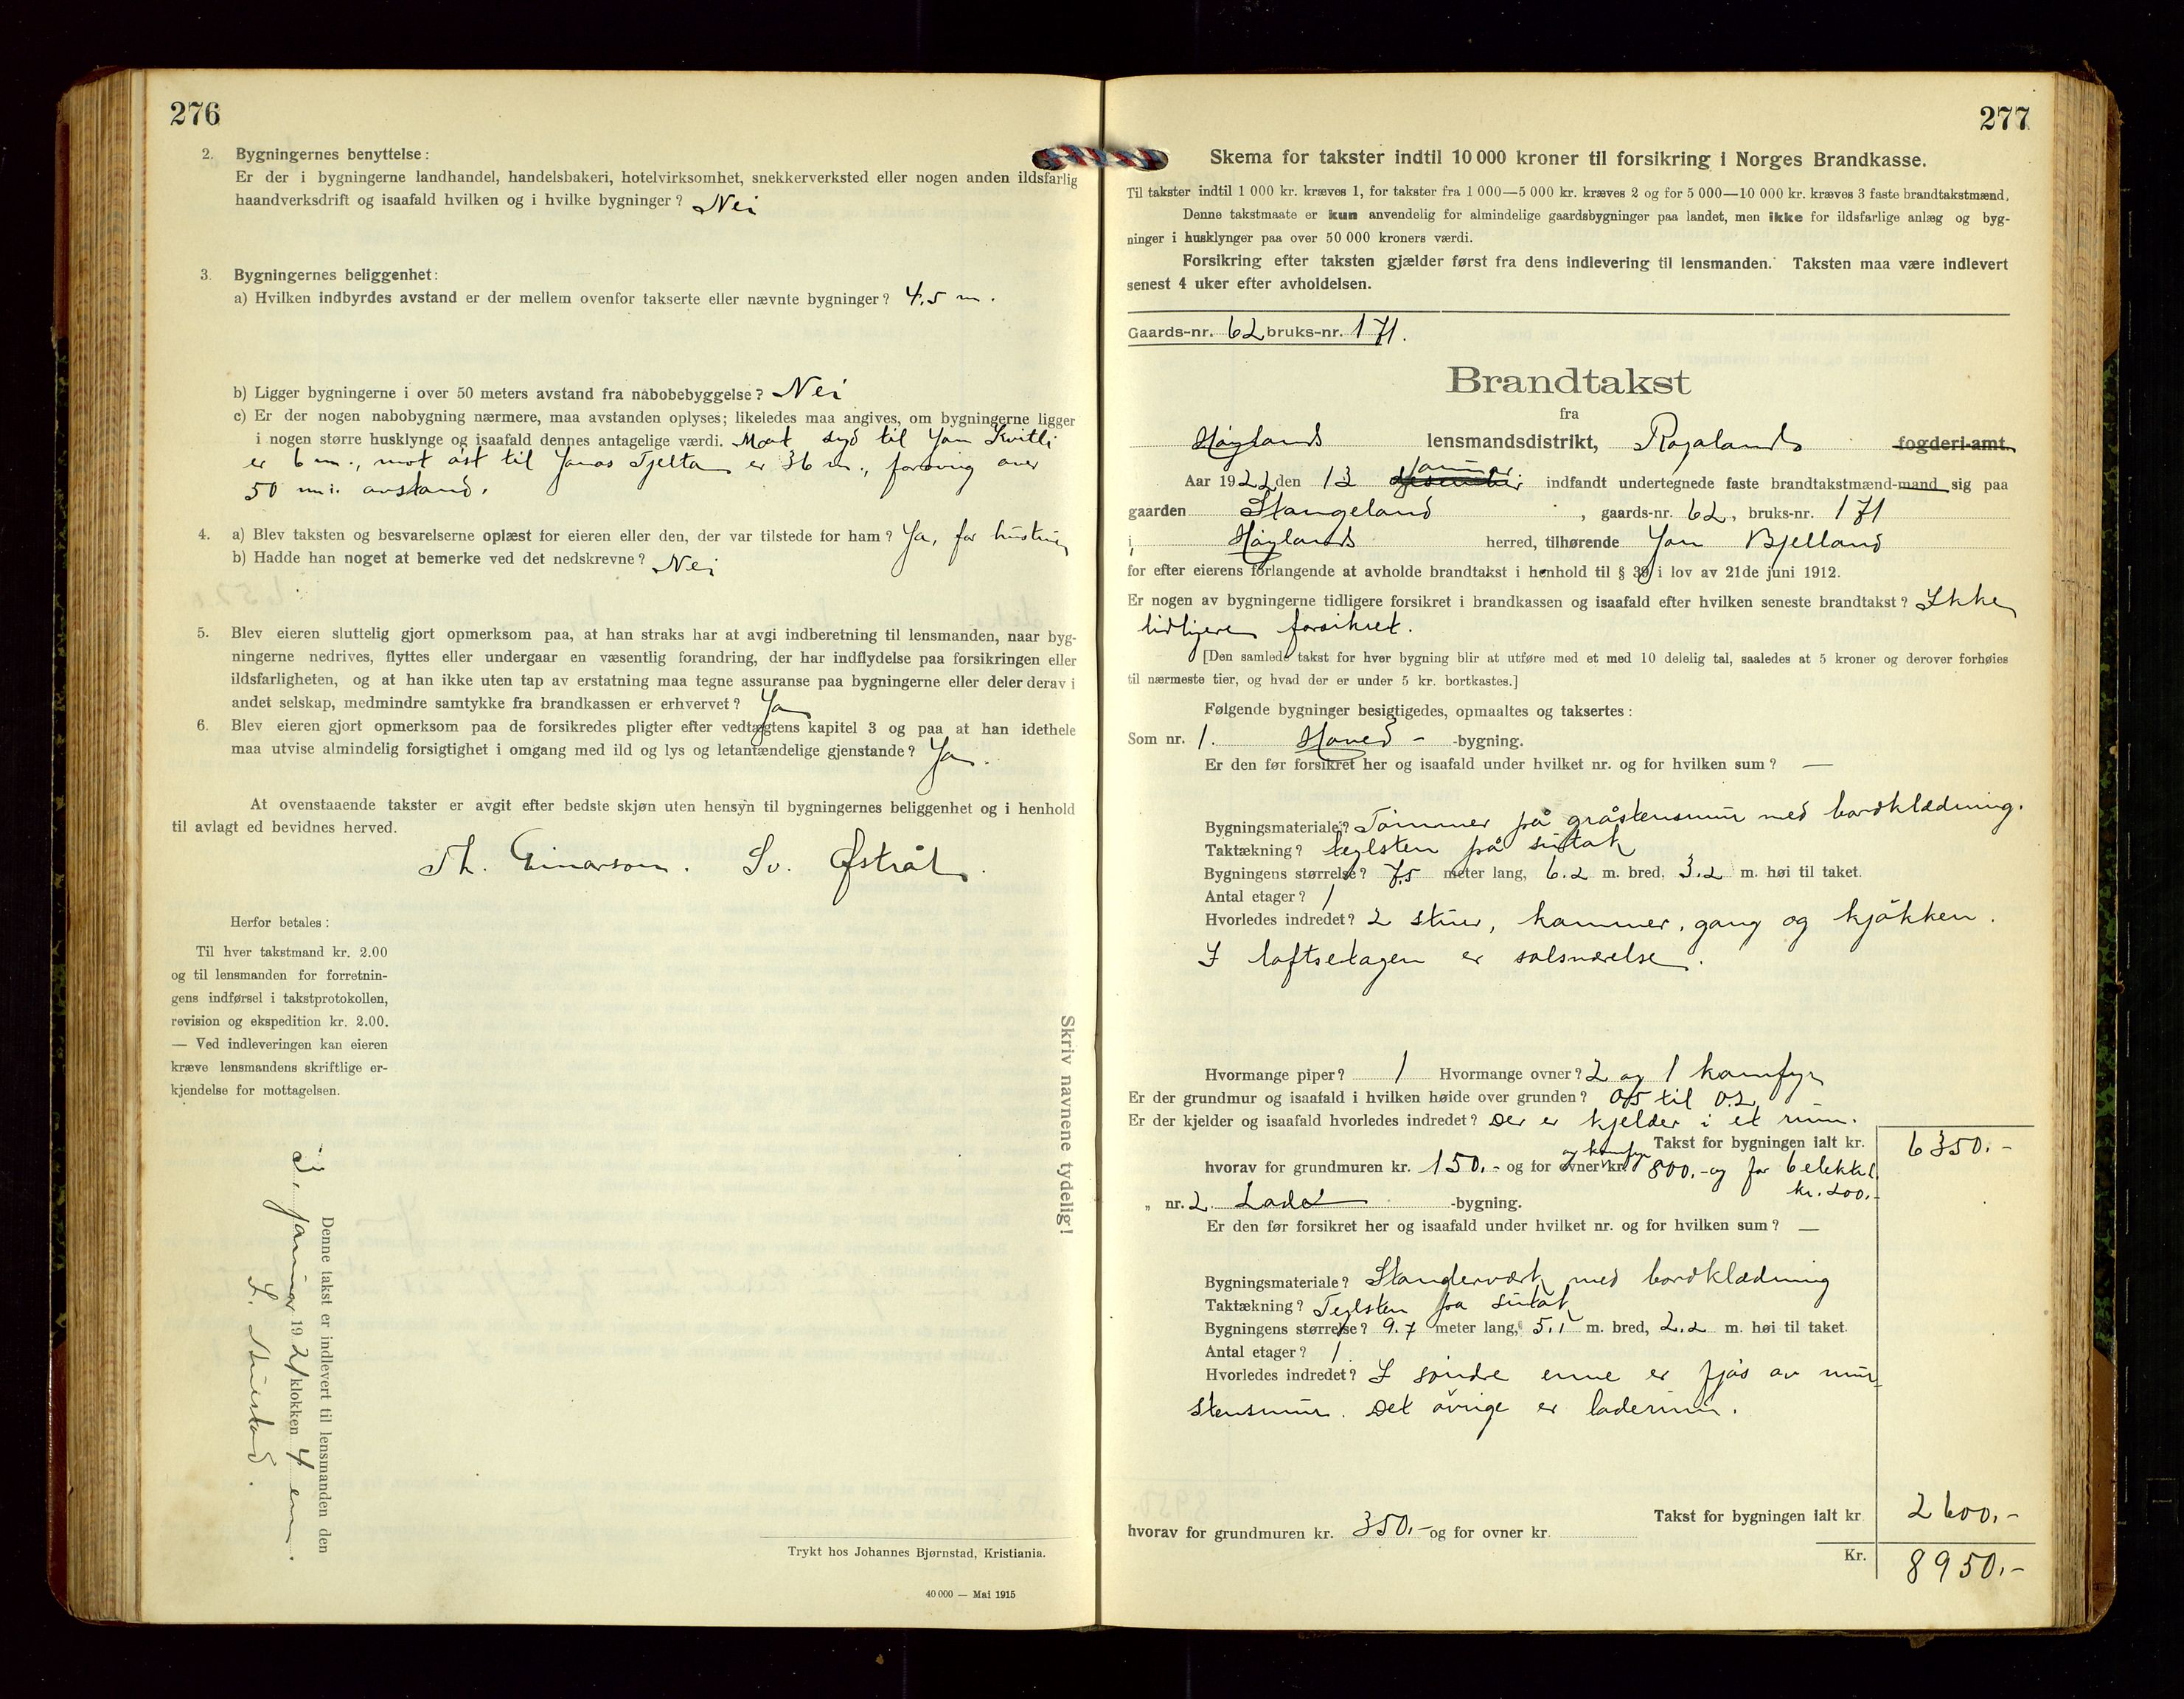 276
2. Bygningernes benyttelse:
Er der i bygningerne landhandel, handelsbakeri, hotelvirksomhet, snekkerverksted eller nogen anden ildsfarlig
haandverksdrift og isaafald hvilken og i hvilke bygninger? Nei
3. Bygningernes beliggenhet:
a) Hvilken indbyrdes avstand er der mellem ovenfor takserte eller nævnte bygninger? 4,5 m.
b) Ligger bygningerne i over 50 meters avstand fra nabobebyggelse? Nei
c) Er der nogen nabobygning nærmere, maa avstanden oplyses; likeledes maa angives, om bygningerne ligger
i nogen større husklynge og isaafald dennes antagelige værdi. Mot syd til Jan Kvitli
er 6 m., mot øst til Jonas Tjelta er 36 m., forøvrig over
50 m.i. avstand.
4. a) Blev taksten og besvarelserne oplæst for eieren eller den, der var tilstede for ham? Ja, for hustruen
b) Hadde han noget at bemerke ved det nedskrevne? Nei
5. Blev eieren sluttelig gjort opmerksom paa, at han straks har at avgi indberetning til lensmanden, naar byg-
ningerne nedrives, flyttes eller undergaar en væsentlig forandring, der har indflydelse paa forsikringen eller
ildsfarligheten, og at han ikke uten tap av erstatning maa tegne assuranse paa bygningerne eller deler derav i
andet selskap, medmindre samtykke fra brandkassen er erhvervet? Ja
6. Blev eieren gjort opmerksom paa de forsikredes pligter efter vedtægtens kapitel 3 og paa at han idethele
maa utvise almindelig forsigtighet i omgang med ild og lys og letantændelige gjenstande? Ja.
At ovenstaaende takster er avgit efter bedste skjøn uten hensyn til bygningernes beliggenhet og i henhold
til avlagt ed bevidnes herved.
Th. Einarson. Sv. Østråt.
Herfor betales:
Til hver takstmand kr. 2.00
og til lensmanden for forretnin-
gens indførsel i takstprotokollen,
revision og ekspedition kr. 2.00.
— Ved indleveringen kan eieren
kræve lensmandens skriftlige er-
kjendelse for mottagelsen.
Skriv navnene tydelig!
Denne takst er indlevert til lensmanden den
januar 1921 klokken 4 em.
Trykt hos Johannes Bjørnstad, Kristiania.
40 000 — Mai 1915
277
Skema for takster indtil 10 000 kroner til forsikring i Norges Brandkasse.
Til takster indtil 1 000 kr. kræves 1, for takster fra 1 000—5 000 kr. kræves 2 og for 5 000—10 000 kr. kræves 3 faste brandtakstmænd.
Denne takstmaate er kun anvendelig for almindelige gaardsbygninger paa landet, men ikke for ildsfarlige anlæg og byg-
ninger i husklynger paa over 50 000 kroners værdi.
Forsikring efter taksten gjælder først fra dens indlevering til lensmanden. Taksten maa være indlevert
senest 4 uker efter avholdelsen.
Gaards-nr. 62 bruks-nr. 171.
Brandtakst
fra
Høylands lensmandsdistrikt, Rogalands fogderi-amt.
Aar 1922 den 13 januar indfandt undertegnede faste brandtakstmænd-mand sig paa
gaarden Stangeland, gaards-nr. 62, bruks-nr. 171
i Høylands herred, tilhørende Jan Bjelland
for efter eierens forlangende at avholde brandtakst i henhold til § 39 i lov av 21de juni 1912.
Er nogen av bygningerne tidligere forsikret i brandkassen og isaafald efter hvilken seneste brandtakst? Ikke
tidligere forsikret.
[Den samlede takst for hver bygning blir at utføre med et med 10 delelig tal, saaledes at 5 kroner og derover forhøies
til nærmeste tier, og hvad der er under 5 kr. bortkastes.]
Følgende bygninger besigtigedes, opmaaltes og taksertes:
Som nr. 1. Hoved- -bygning.
Er den før forsikret her og isaafald under hvilket nr. og for hvilken sum? —
Bygningsmateriale? Tømmer på gråstensmur med bordklædning.
Taktækning? teglsten på sutak
Bygningens størrelse? 7,5 meter lang, 6.2 m. bred, 3.2 m. høi til taket.
Antal etager? 1
Hvorledes indredet? 2 stuer, kammer, gang og kjøkken.
I loftsetagen er solsværelse.
Hvormange piper? 1 Hvormange ovner? 2 og 1 komfyr
Er der grundmur og isaafald i hvilken høide over grunden? 0,5 til 0.2
Er der kjelder og isaafald hvorledes indredet? Der er kjelder i et rum.
Takst for bygningen ialt kr. 6350.-
hvorav for grundmuren kr. 150.- og for ovner og komfyr kr. 800.- og for 6 elektr l.
kr. 200.-
„ nr. 2. Lade -bygning.
Er den før forsikret her og isaafald under hvilket nr. og for hvilken sum? —
Bygningsmateriale? Standerværk med bordklædning
Taktækning? Teglsten på sutak
Bygningens størrelse? 9.7 meter lang, 5.1 m. bred, 2.2 m. høi til taket.
Antal etager? 1
Hvorledes indredet? I søndre enne er fjøs av mur-
stensmur. Det øvrige er laderum.
Takst for bygningen ialt kr 2600.-
hvorav for grundmuren kr. 350.- og for ovner kr.
Kr. 8950.-